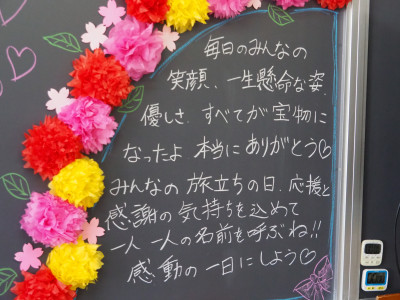 毎日のみんなの
笑顔、一生懸命な姿、
優しさ、すべてが宝物に
なったよ 本当にありがとう♡
みんなの旅立ちの日、応援と
感謝の気持ちを込めて
一人一人の名前を呼ぶね!!
感動の一日にしよう♡